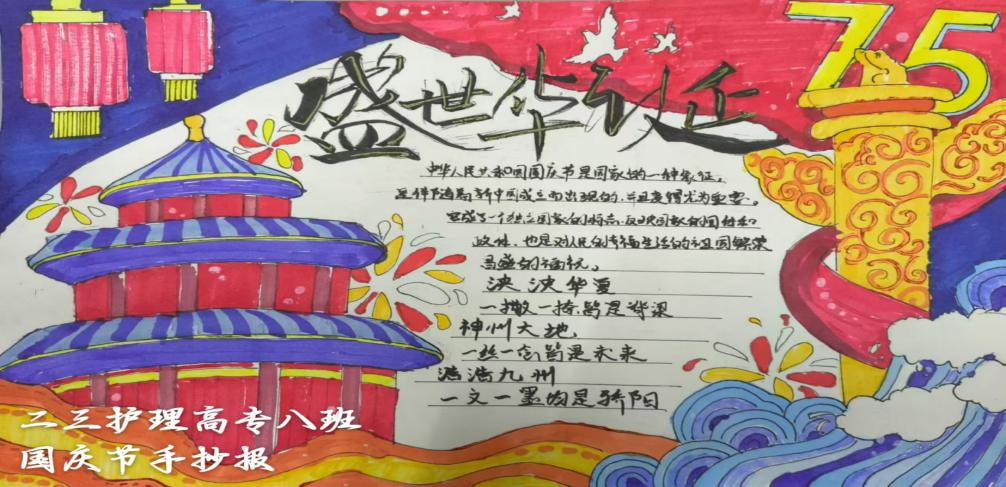 75
盛世华诞
中华人民共和国国庆节是国家的一种象征,
是伴随着新中国成立而出现的,并且变得尤为重要。
它成了一个独立国家的标志,反映国家的国体和
政体,也是对人民的幸福生活的祖国繁荣
昌盛的福祝。
泱泱华夏
一撇一捺皆是脊梁
神州大地,
一丝一念皆是未来
浩浩九州
一文一墨均是骄阳
二三护理高专八班
国庆节手抄报